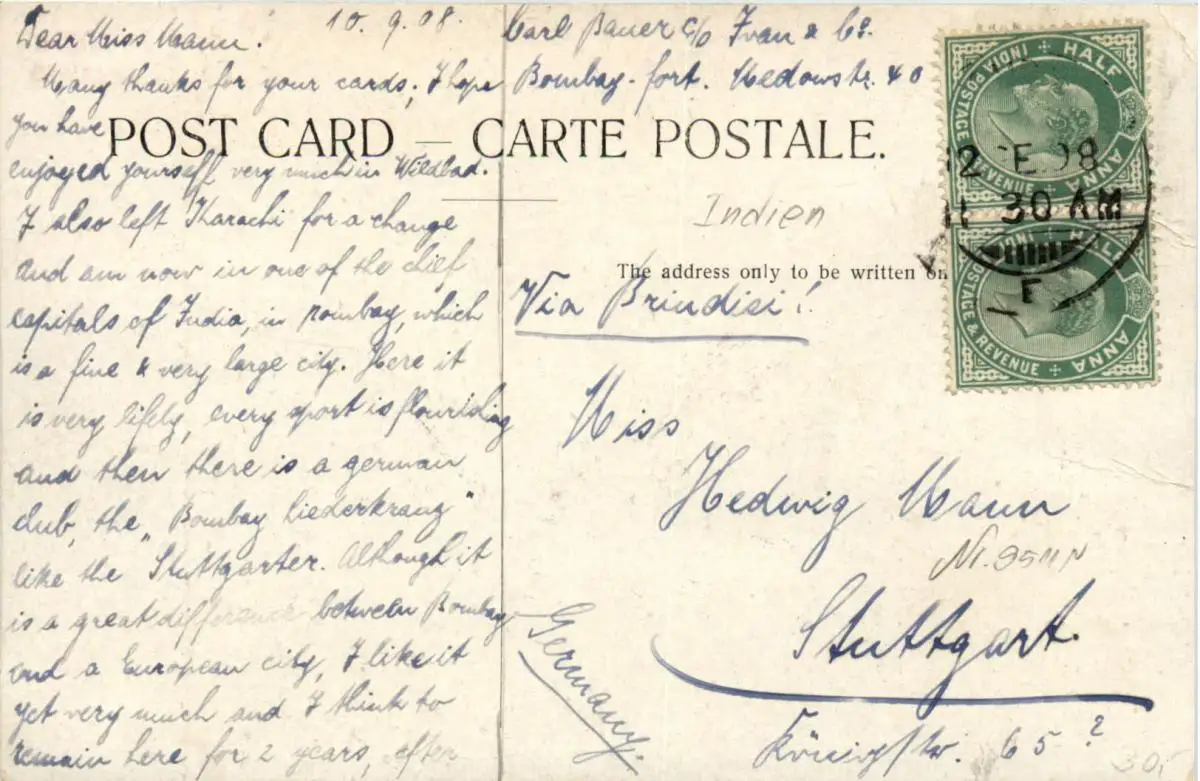 Dear Miss Mann! 10.9.08.
Many thanks for your cards; I hope
you have
enjoyed yourself very much in Wildbad.
I also left Karachi for a change
and am now in one of the chief
capitals of India, in Bombay, which
is a fine & very large city. Here it
is very lifely, every sport is flourishing
and then there is a german
club, the „Bombay Liederkranz"
like the Stuttgarter. Although it
is a great difference between Bombay
and a European city, I like it
yet very much and I think to
remain here for 2 years, after
Carl Bauer c/o Ivan & Co.
Bombay-fort. Medowstr. 40
POST CARD — CARTE POSTALE.
Indien
The address only to be written on
Via Brindisi!
Miss
Hedwig Mann
Stuttgart.
Königstr. 65?
Germany.
INDIA POSTAGE & REVENUE
HALF ANNA
12 E 08
11 30 AM
F
POSTAGE & REVENUE
HALF ANNA
30,-